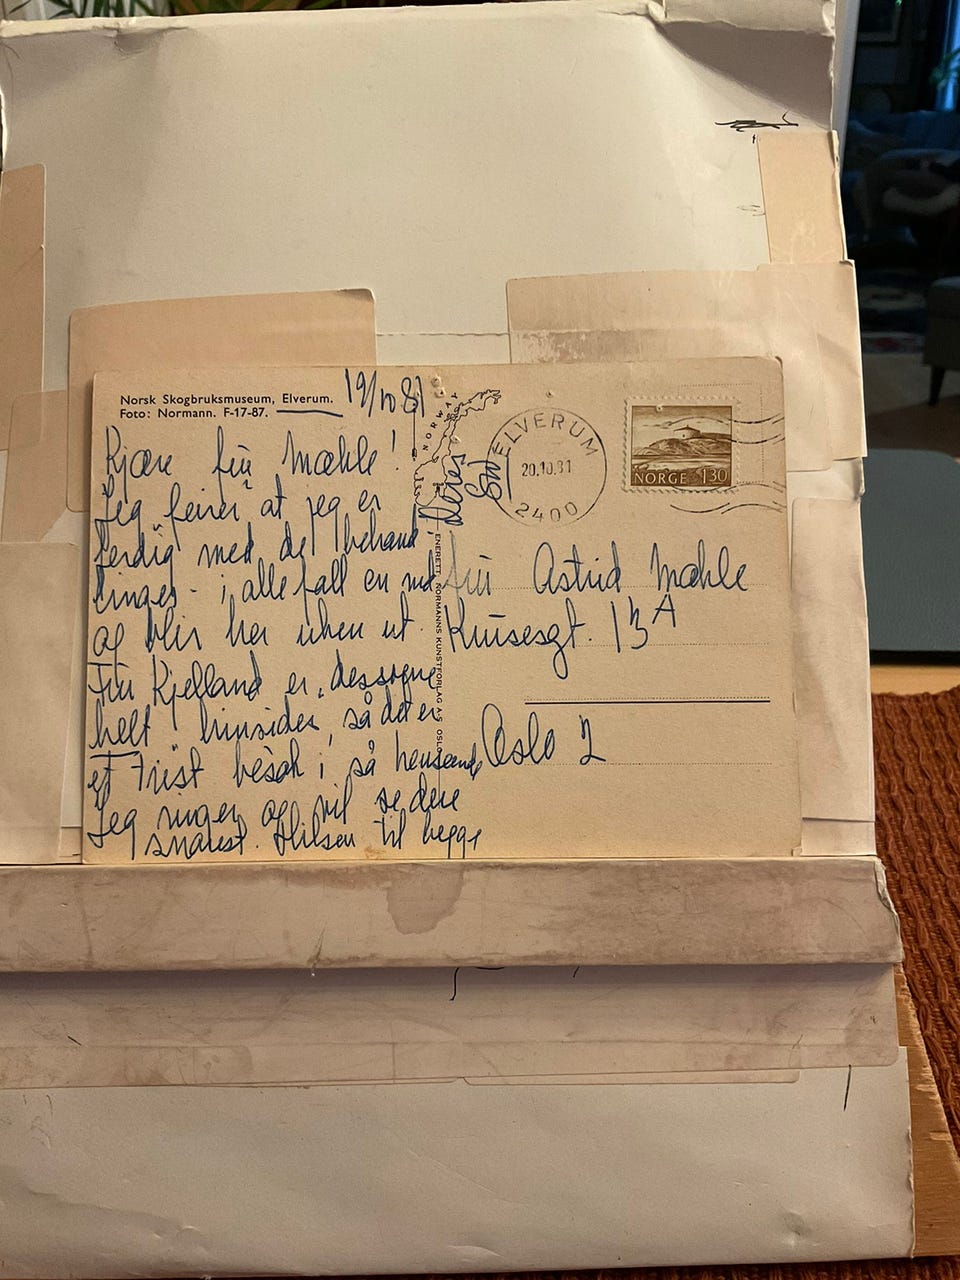 Norsk Skogbruksmuseum, Elverum.
Foto: Normann. F-17-87.
19/10 81
Kjære fru Mæhle!
Jeg feirer at jeg er
ferdig med de behand
linger - i alle fall en
og blir her uken ut.
Fru Kjelland er, dessogne
helt hinsides, så det er
et trist besøk i så henseende
Jeg ringer og vil se dere
snarest. Hilsen til begge
Deres
NORWAY
ENERETT: NORMANNS KUNSTFORLAG AS OSLO
ELVERUM
20.10.81
2400
NORGE 130
fru Astrid Mæhle
Krusesgt. 13A
Oslo 2